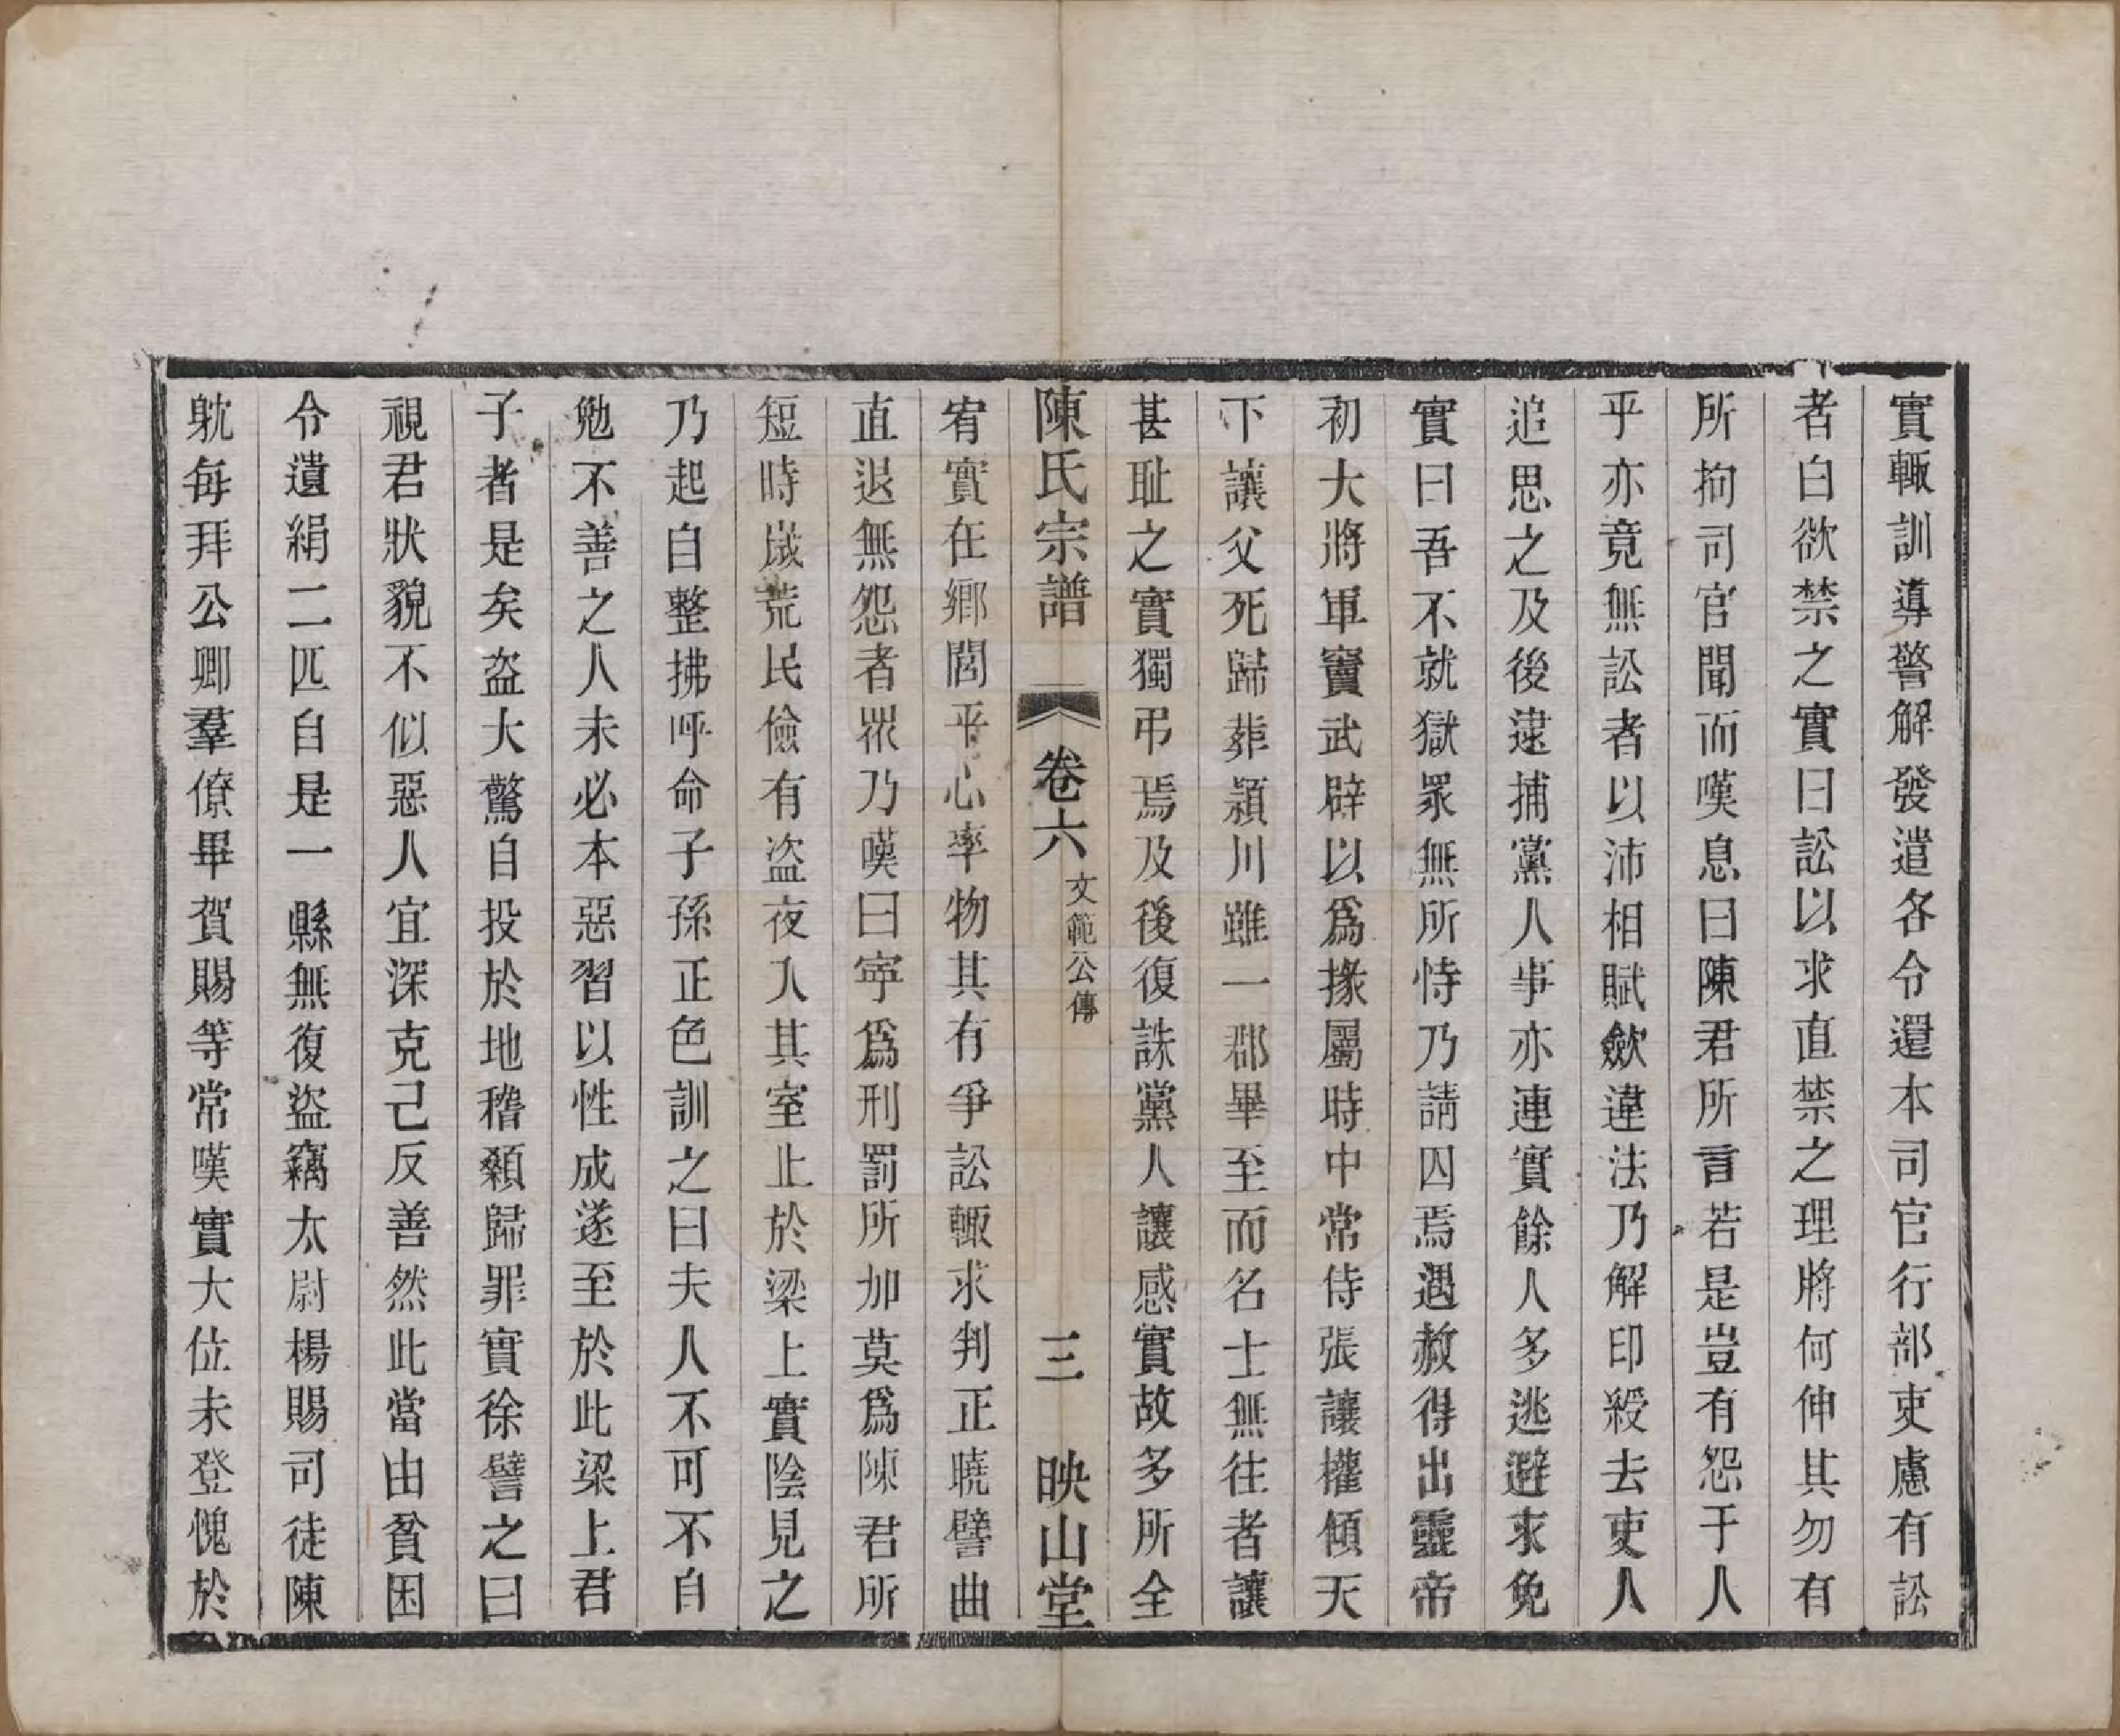 實輒訓導警解發遣各令還本司官行部吏慮有訟
者白欲禁之實曰訟以求直禁之理將何伸其勿有
所拘司官聞而嘆息曰陳君所言若是豈有怨于人
乎亦竟無訟者以沛相賦歛違法乃解印綬去吏人
追思之及後逮捕黨人事亦連實餘人多逃避求免
實曰吾不就獄眾無所恃乃請囚焉遇赦得出靈帝
初大將軍竇武辟以爲掾屬時中常侍張讓權傾天
下讓父死歸葬潁川雖一郡畢至而名士無往者讓
甚耻之實獨弔焉及後復誅黨人讓感實故多所全
陳氏宗譜 卷六 文範公傳 三 映山堂
宥實在鄉閭平心率物其有爭訟輒求判正曉譬曲
直退無怨者眾乃嘆曰寧爲刑罰所加莫爲陳君所
短時嵗荒民儉有盜夜入其室止於梁上實陰見之
乃起自整拂呼命子孫正色訓之曰夫人不可不自
勉不善之人未必本惡習以性成遂至於此梁上君
子者是矣盜大驚自投於地稽顙歸罪實徐譬之曰
視君狀貌不似惡人宜深克己反善然此當由貧困
令遺絹二匹自是一縣無復盜竊太尉楊賜司徒陳
躭每拜公卿羣僚畢賀賜等常嘆實大位未登愧於